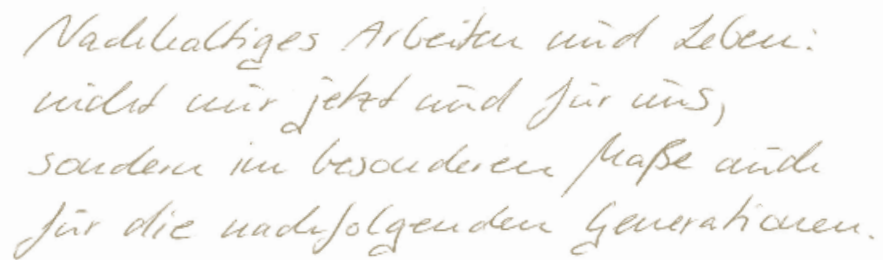 Nachhaltiges Arbeiten und Leben:
nicht nur jetzt und für uns,
sondern im besonderen Maße auch
für die nachfolgenden Generationen.